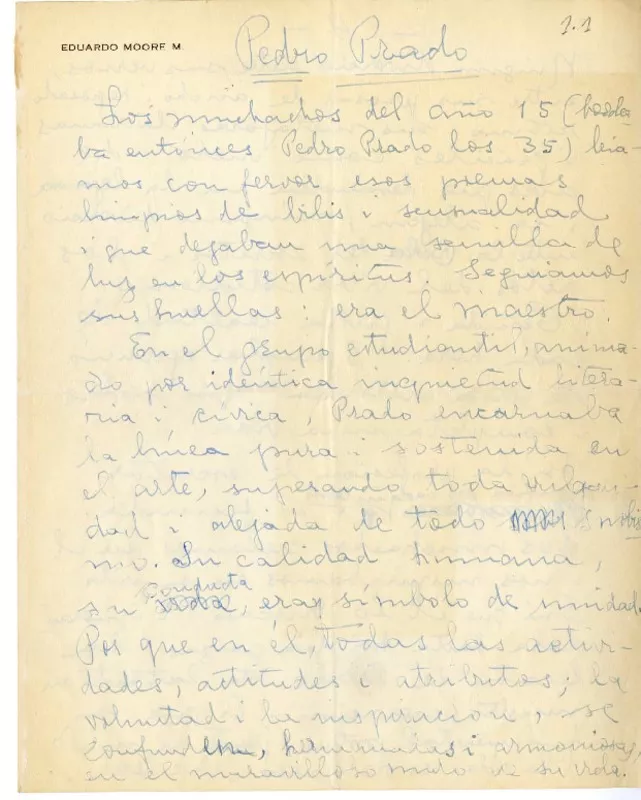 1.1
EDUARDO MOORE M.
Pedro Prado
Los muchachos del año 15 (bordea
ba entónces Pedro Prado los 35) leia-
mos con fervor esos poemas
limpios de bilis i sensualidad
i que dejaban una semilla de
luz en los espíritus. Seguiamos
sus huellas: era el maestro.
En el grupo estudiantil, anima-
do por idéntica inquietud litera-
ria i cívica, Prado encarnaba
la línea pura i sostenida en
el arte, superando toda vulgari-
dad i alejada de todo snobis
mo. Su calidad humana,
su conducta, eran símbolo de unidad.
Por que en él, todas las activi-
dades, actitudes i atributos; la
voluntad i la inspiración, se
confunden, i armoniosas,
en el maravilloso de su vida.